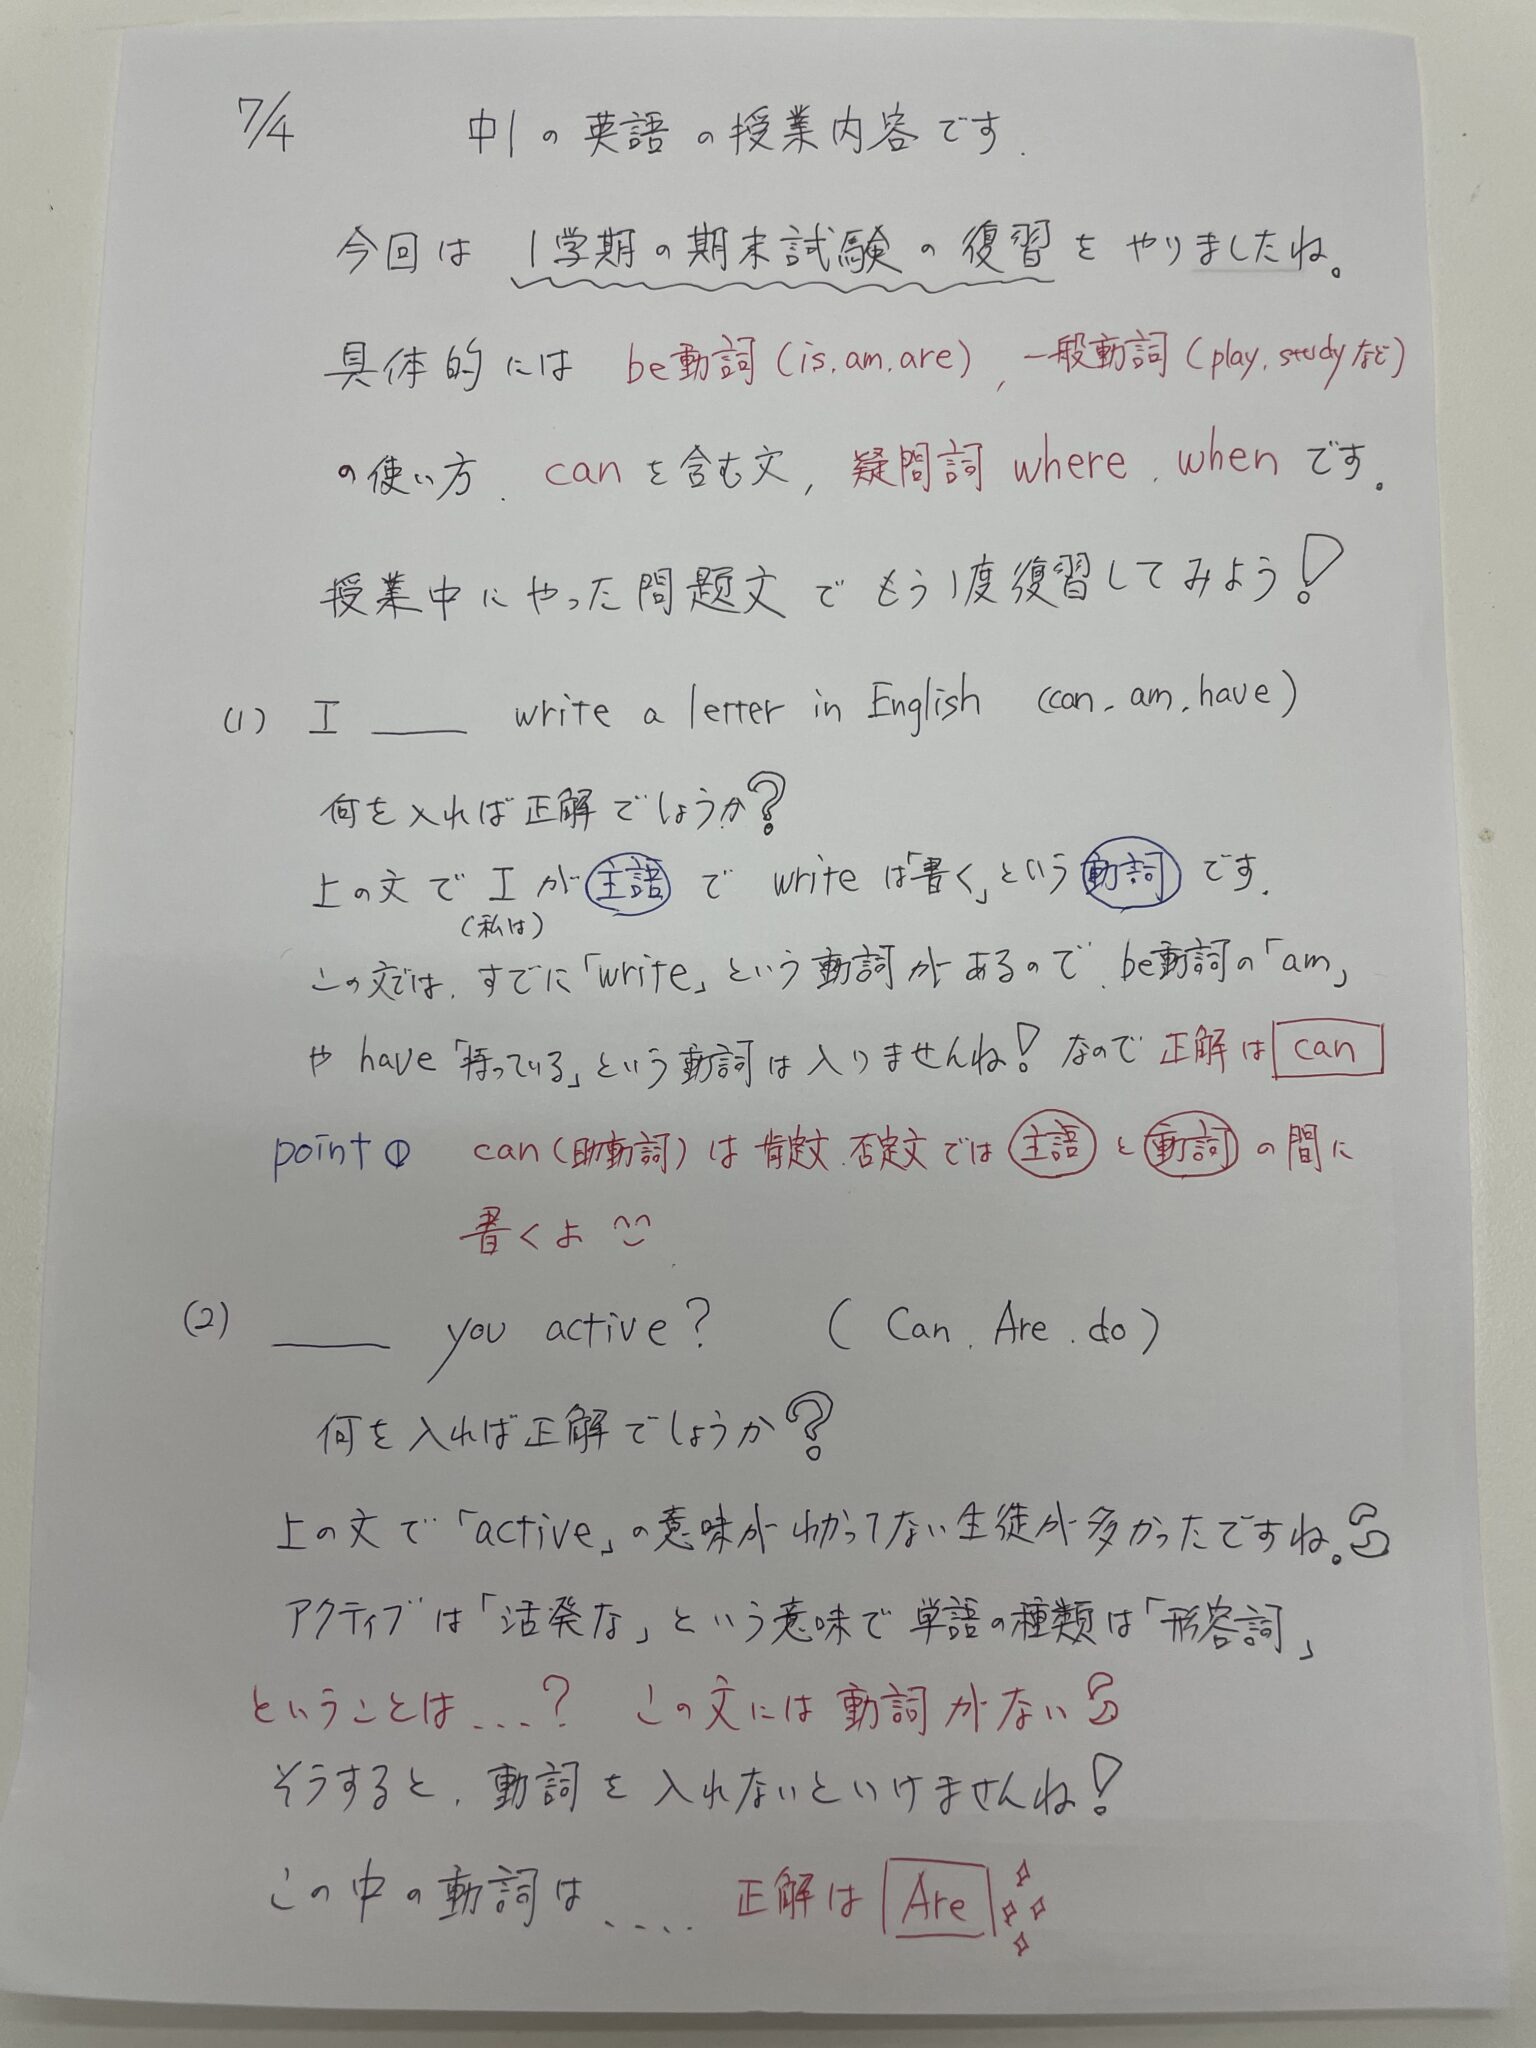 7/4 中1の英語の授業内容です.
今回は 1学期の期末試験の復習をやりましたね。
具体的には be動詞(is.am.are), 一般動詞(play.studyなど)
の使い方. canを含む文, 疑問詞 where. whenです。
授業中にやった問題文でもう1度復習してみよう!
(1) I ____ write a letter in English (can. am. have)
何を入れば正解でしょうか?
上の文で Iが主語で writeは「書く」という動詞です.
(私は)
この文では.すでに「write」という動詞があるので.be動詞の「am」
や have「持っている」という動詞は入りませんね!なので正解は can
point① can(助動詞)は肯定文.否定文では主語と動詞の間に
書くよ
(2) ____ you active? (Can. Are. do)
何を入れば正解でしょうか?
上の文で「active」の意味がわかってない生徒が多かったですね。
アクティブは「活発な」という意味で単語の種類は「形容詞」
ということは...? この文には動詞がない
そうすると.動詞を入れないといけませんね!
この中の動詞は.... 正解は Are